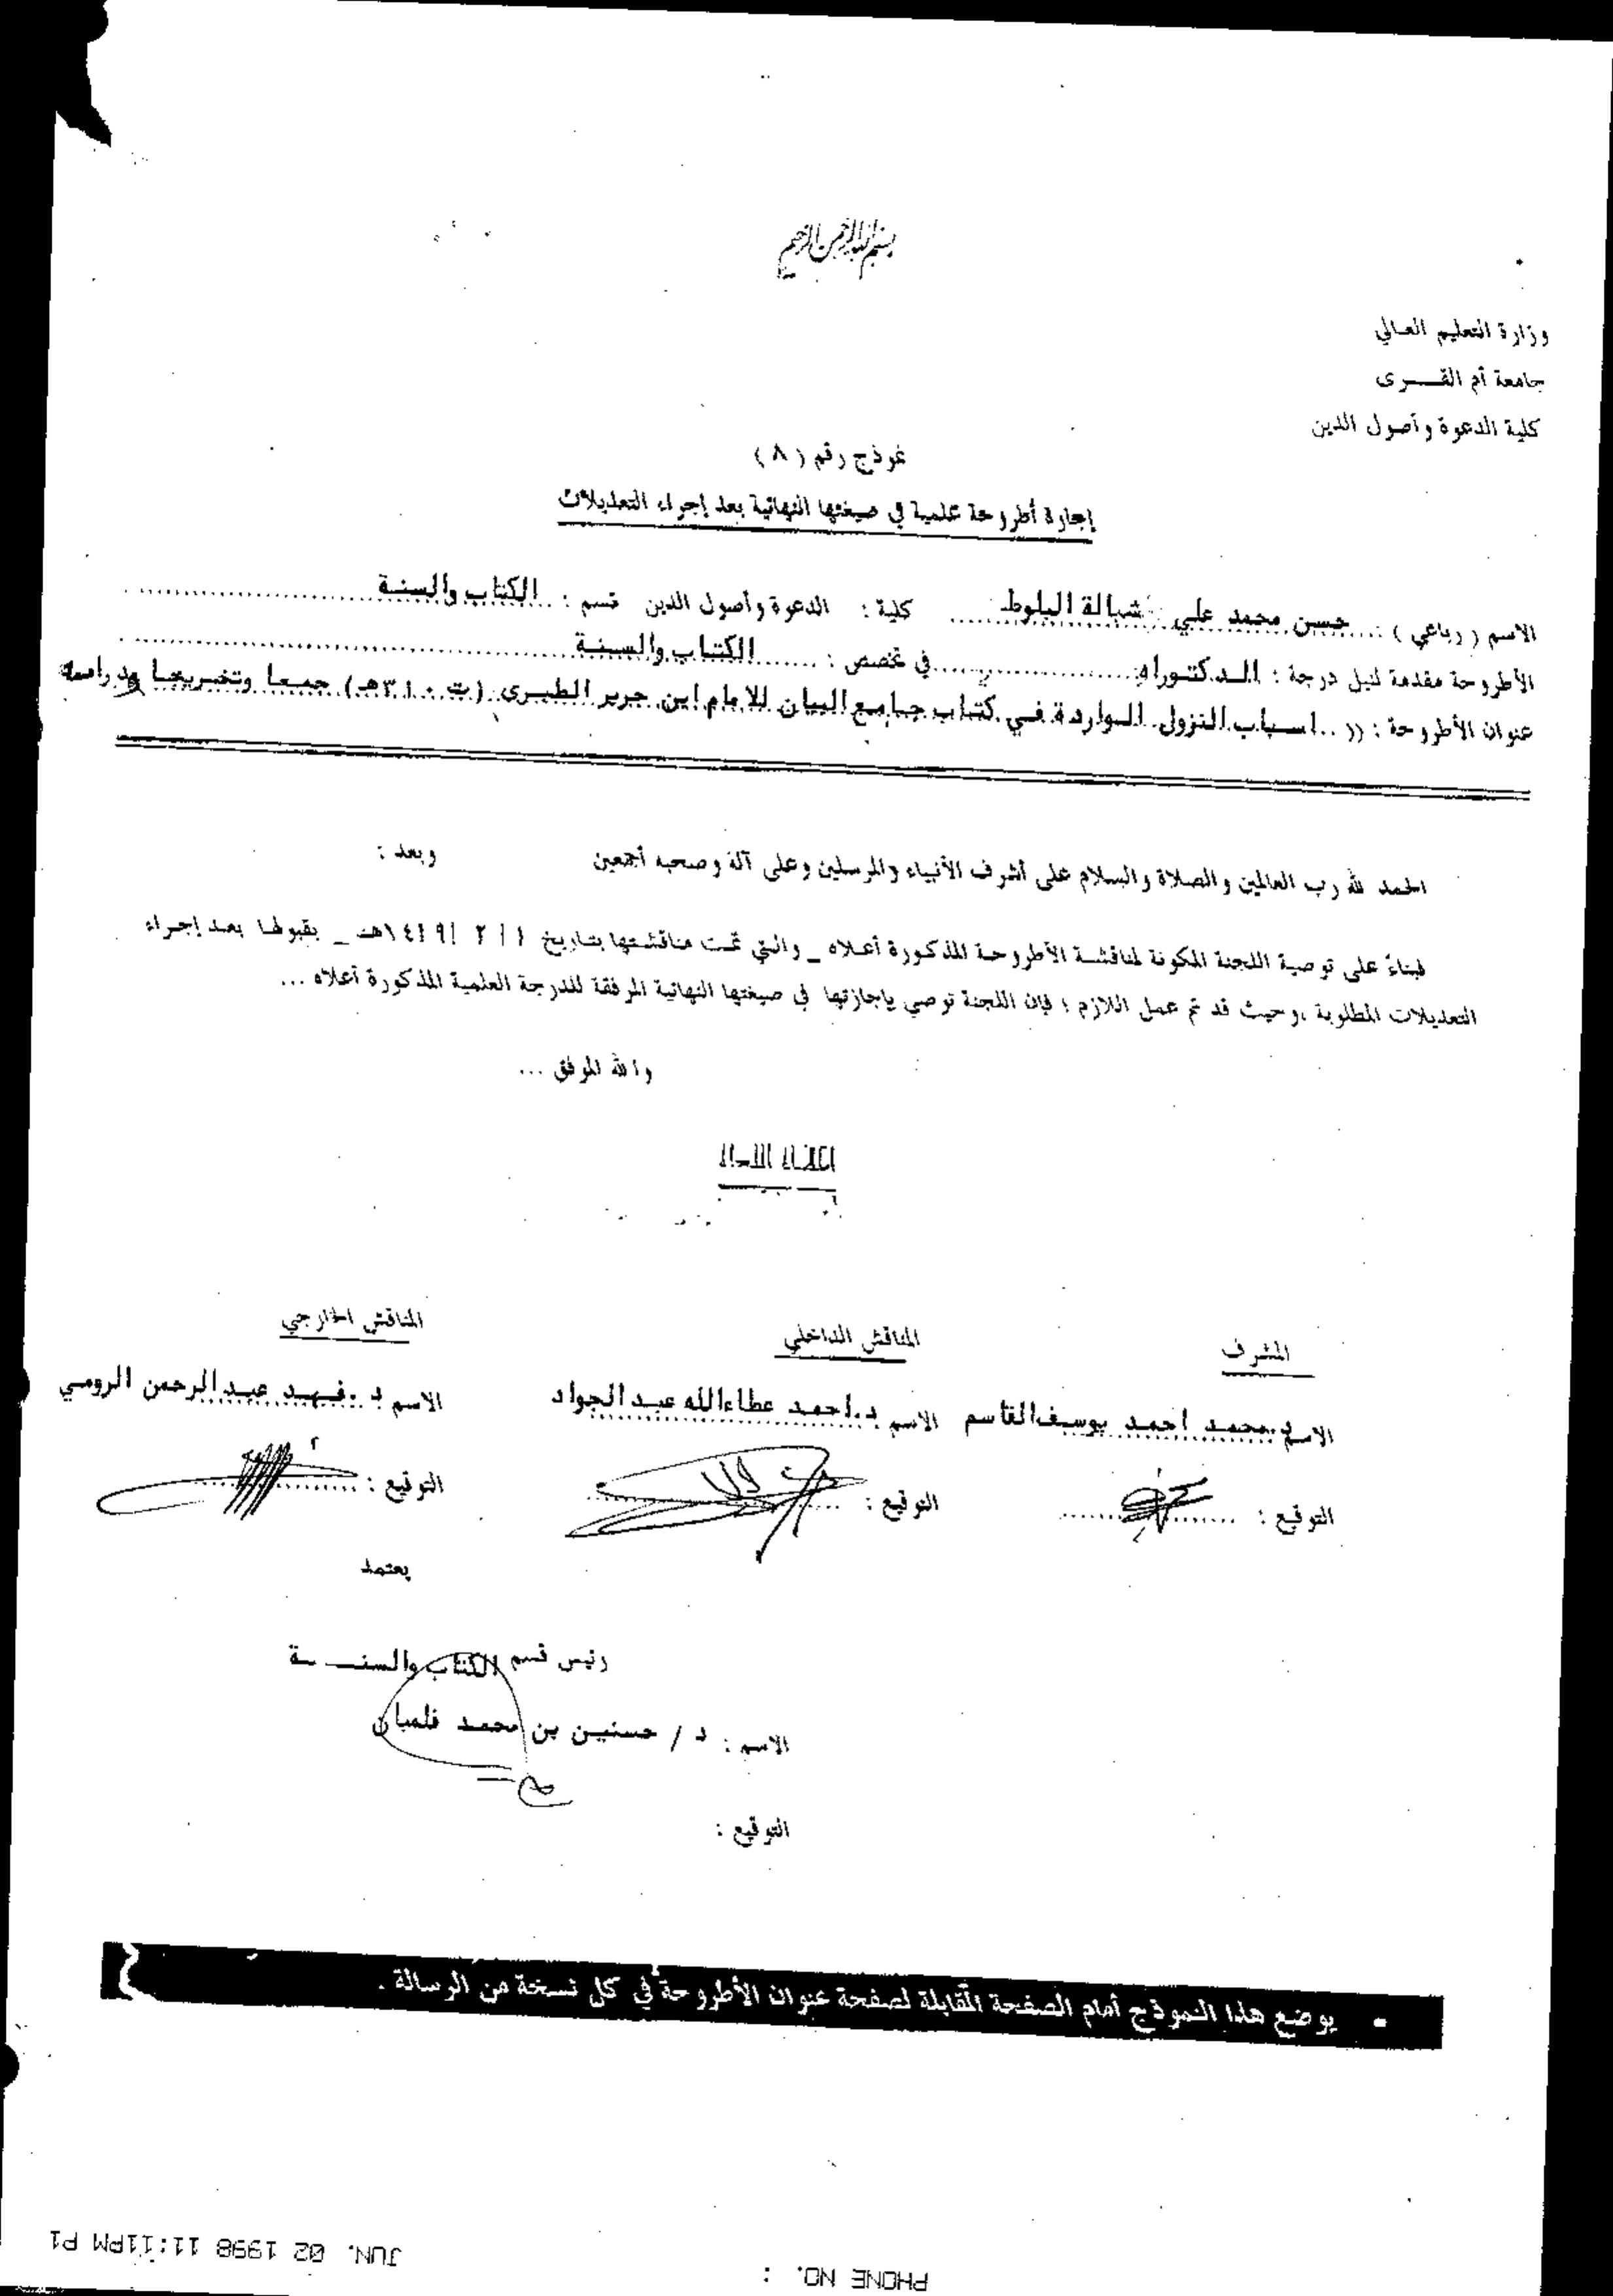 بسم الله الرحمن الرحيم
وزارة التعليم العالي
جامعة أم القـــرى
كلية الدعوة وأصول الدين
نموذج رقم ( ٨ )
إجازة أطروحة علمية في صيغتها النهائية بعد إجراء التعديلات
الاسم ( رباعي ) : حسن محمد علي شبالة البلوط كلية : الدعوة وأصول الدين قسم : الكتاب والسنة
الأطروحة مقدمة لنيل درجة : الدكتوراه في تخصص : الكتاب والسنة
عنوان الأطروحة : (( اسباب النزول الواردة في كتاب جامع البيان للامام ابن جرير الطبرى (ت ٣١٠هـ) جمعا وتخريجا ودراسة
الحمد لله رب العالمين والصلاة والسلام على أشرف الأنبياء والمرسلين وعلى آله وصحبه أجمعين وبعد :
فبناءً على توصية اللجنة المكونة لمناقشة الأطروحة المذكورة أعلاه _ والتي تمت مناقشتها بتاريخ ١ / ٢ / ١٤١٩هـ _ بقبولها بعد إجراء
التعديلات المطلوبة ، وحيث قد تم عمل اللازم ؛ فإن اللجنة توصي بإجازتها في صيغتها النهائية المرفقة للدرجة العلمية المذكورة أعلاه ...
والله الموفق ...
أعضاء اللجنة
المشرف المناقش الداخلي المناقش الخارجي
الاسم د.محمد احمد يوسف القاسم الاسم د.احمد عطاءالله عبدالجواد الاسم د.فهد عبدالرحمن الرومي
التوقيع : التوقيع : التوقيع :
يعتمد
رئيس قسم الكتاب والسنــة
الاسم : د / حسنين بن محمد فلمبان
التوقيع :
- يوضع هذا النموذج أمام الصفحة المقابلة لصفحة عنوان الأطروحة في كل نسخة من الرسالة .
PHONE NO. :
JUN. 02 1998 11:11PM P1